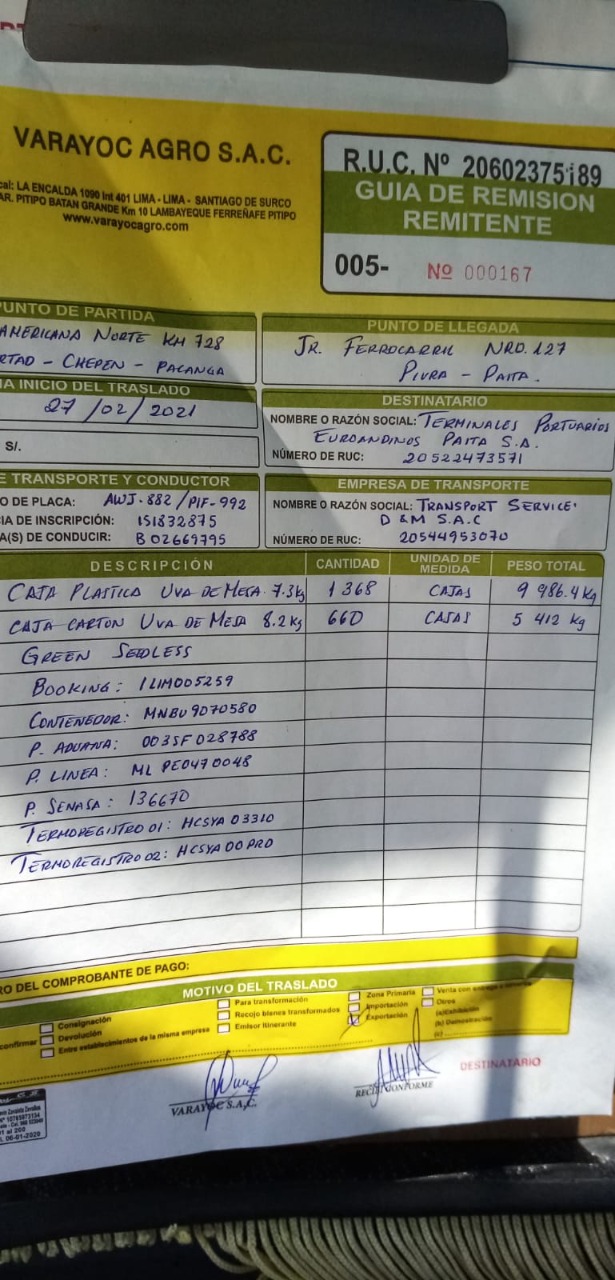 VARAYOC AGRO S.A.C.
cal: LA ENCALDA 1090 Int 401 LIMA - LIMA - SANTIAGO DE SURCO
AR. PITIPO BATAN GRANDE Km 10 LAMBAYEQUE FERREÑAFE PITIPO
www.varayocagro.com
R.U.C. Nº 20602375189
GUIA DE REMISION
REMITENTE
005- Nº 000167
PUNTO DE PARTIDA
AMERICANA NORTE KM 728
RTAD - CHEPEN - PACANGA
PUNTO DE LLEGADA
JR. FERROCARRIL NRO. 127
PIURA - PAITA.
A INICIO DEL TRASLADO
27/02/2021
S/.
DESTINATARIO
NOMBRE O RAZÓN SOCIAL: TERMINALES PORTUARIOS
EUROANDINOS PAITA S.A.
NÚMERO DE RUC: 20522473571
E TRANSPORTE Y CONDUCTOR
O DE PLACA: AWJ-882/PIF-992
CIA DE INSCRIPCIÓN: 151832875
A(S) DE CONDUCIR: B02669795
EMPRESA DE TRANSPORTE
NOMBRE O RAZÓN SOCIAL: TRANSPORT SERVICE'
D & M S.A.C
NÚMERO DE RUC: 20544953070
DESCRIPCIÓN CANTIDAD UNIDAD DE MEDIDA PESO TOTAL
CAJA PLASTICA UVA DE MESA 7.3kg 1 368 CAJAS 9 986.4 kg
CAJA CARTON UVA DE MESA 8.2 kg 660 CAJAS 5 412 kg
GREEN SEEDLESS
BOOKING: 1LIM005259
CONTENEDOR: MNBU9070580
P. ADUANA: 003SF028788
P. LINEA: ML PE0470048
P. SENASA: 136670
TERMOREGISTRO 01: HCSYA03310
TERMOREGISTRO 02: HCSYA00PR0
RO DEL COMPROBANTE DE PAGO:
MOTIVO DEL TRASLADO
confirmar
Consignación
Devolución
Entre establecimientos de la misma empresa
Para transformación
Recojo bienes transformados
Emisor Itinerante
Zona Primaria
Importación
Exportación
Venta con entrega a
Otros
(a) Exhibición
(b) Demostración
(c)
VARAYOC S.A.C.
RECIBI CONFORME
DESTINATARIO